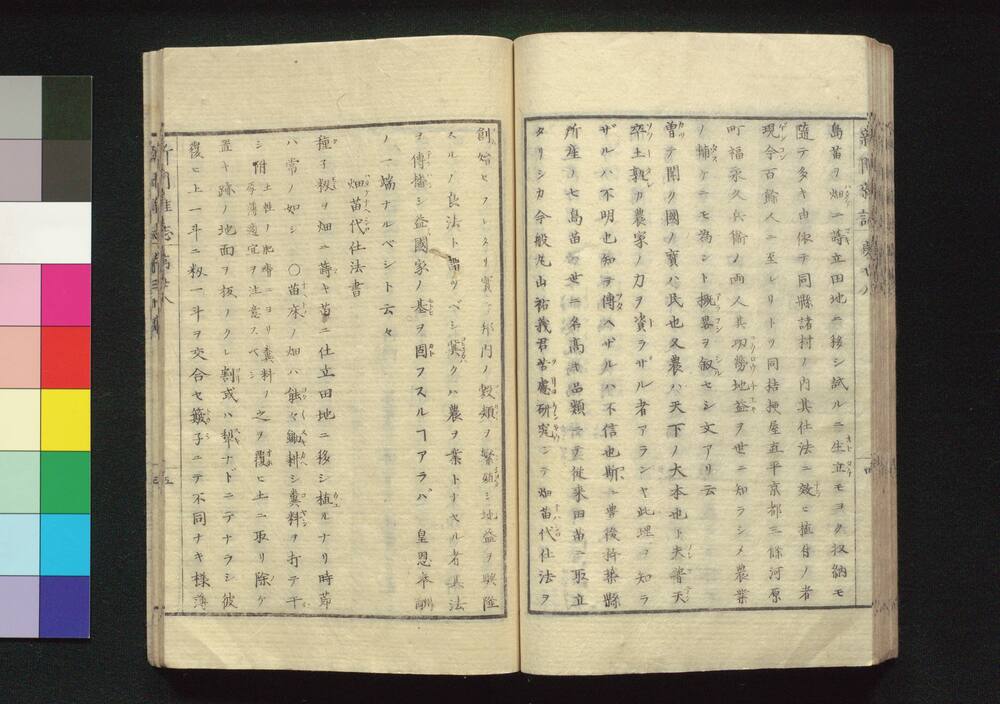 島苗ヲ畑ニ蒔立田地ニ移シ試ルニ生立モヨク収納モ
随テ多キ由依テ同縣諸村ノ内其仕法ニ效ヒ植付ノ者
現今百餘人ニ至レリトソ同桔梗屋五平京都三條河原
町福永久兵衛ノ両人其功勞地益ヲ世ニ知ラシメ農業
ノ輔ケニモ為ント概畧ヲ叙セシ文アリ云
曽テ聞ク國ノ寶ハ民也又農ハ天下ノ大本也ト夫普天
率土孰カ農家ノ力ヲ資ラザル者アランヤ此理ヲ知ラ
ザルハ不明也知テ傳ヘザルハ不信也斯ニ豊後杵築縣
所産ノ七島苗ハ世ニ名高キ品類ニテ従来田苗ニ取立
タリシカ今般丸山祐義君苦慮研究シテ畑苗代仕法ヲ
創始セフレタリ實ニ邦内ノ穀類ヲ繁殖シ地益ヲ興隆
スルノ良法ト謂ツベシ冀クハ農ヲ業トナセル者其法
ヲ傳播シ益國家ノ基ヲ固フスルヿアラバ 皇恩奉酬
ノ一端ナルベシト云々
畑苗代仕法書
種子籾ヲ畑ニ蒔キ苗ニ仕立田地ニ移シ植ルナリ時節
ハ常ノ如シ ○苗床ノ畑ハ能々鋤耕シ糞料ヲ打テ干
シ附 土性ノ肥瘠ニヨリ糞料ノ厚薄適宜ヲ注意スベシ 之ヲ覆ヒ土ニ取リ除ケ
置キ跡ノ地面ヲ板ノクレ割或ハ犂ナドニテナラシ彼
覆ヒ土一斗ニ籾一斗ヲ交合セ簸子ニテ不同ナキ様薄